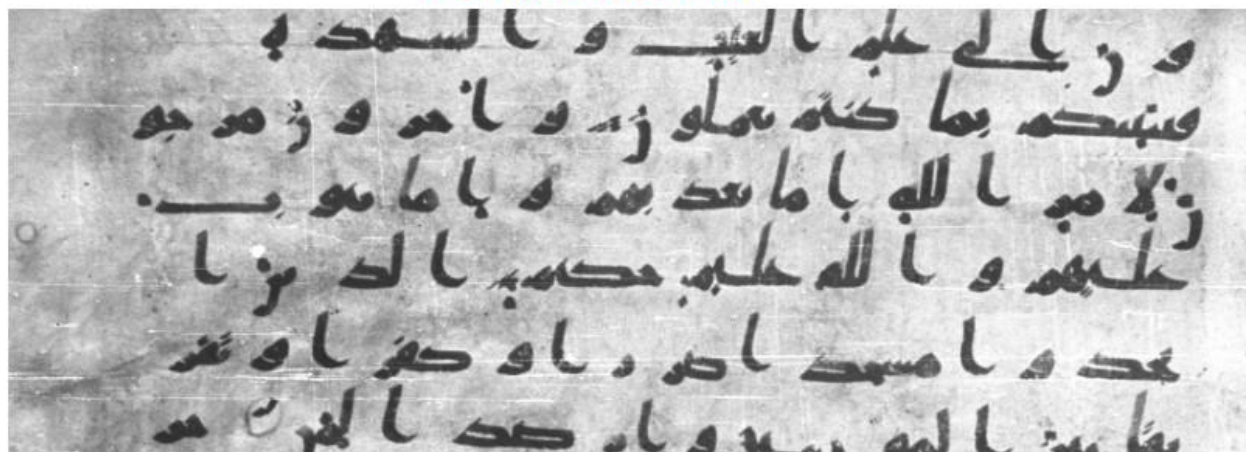 ون الى علم الغيب والشهدة
فينبئكم بما كنتم تعملون واخرون مرجو
ن لامر الله اما يعذبهم واما يتوب
عليهم والله عليم حكيم الذين ا
تخذوا مسجدا ضررا وكفرا وتفر
يقا بين المومنين وارصدا لمن